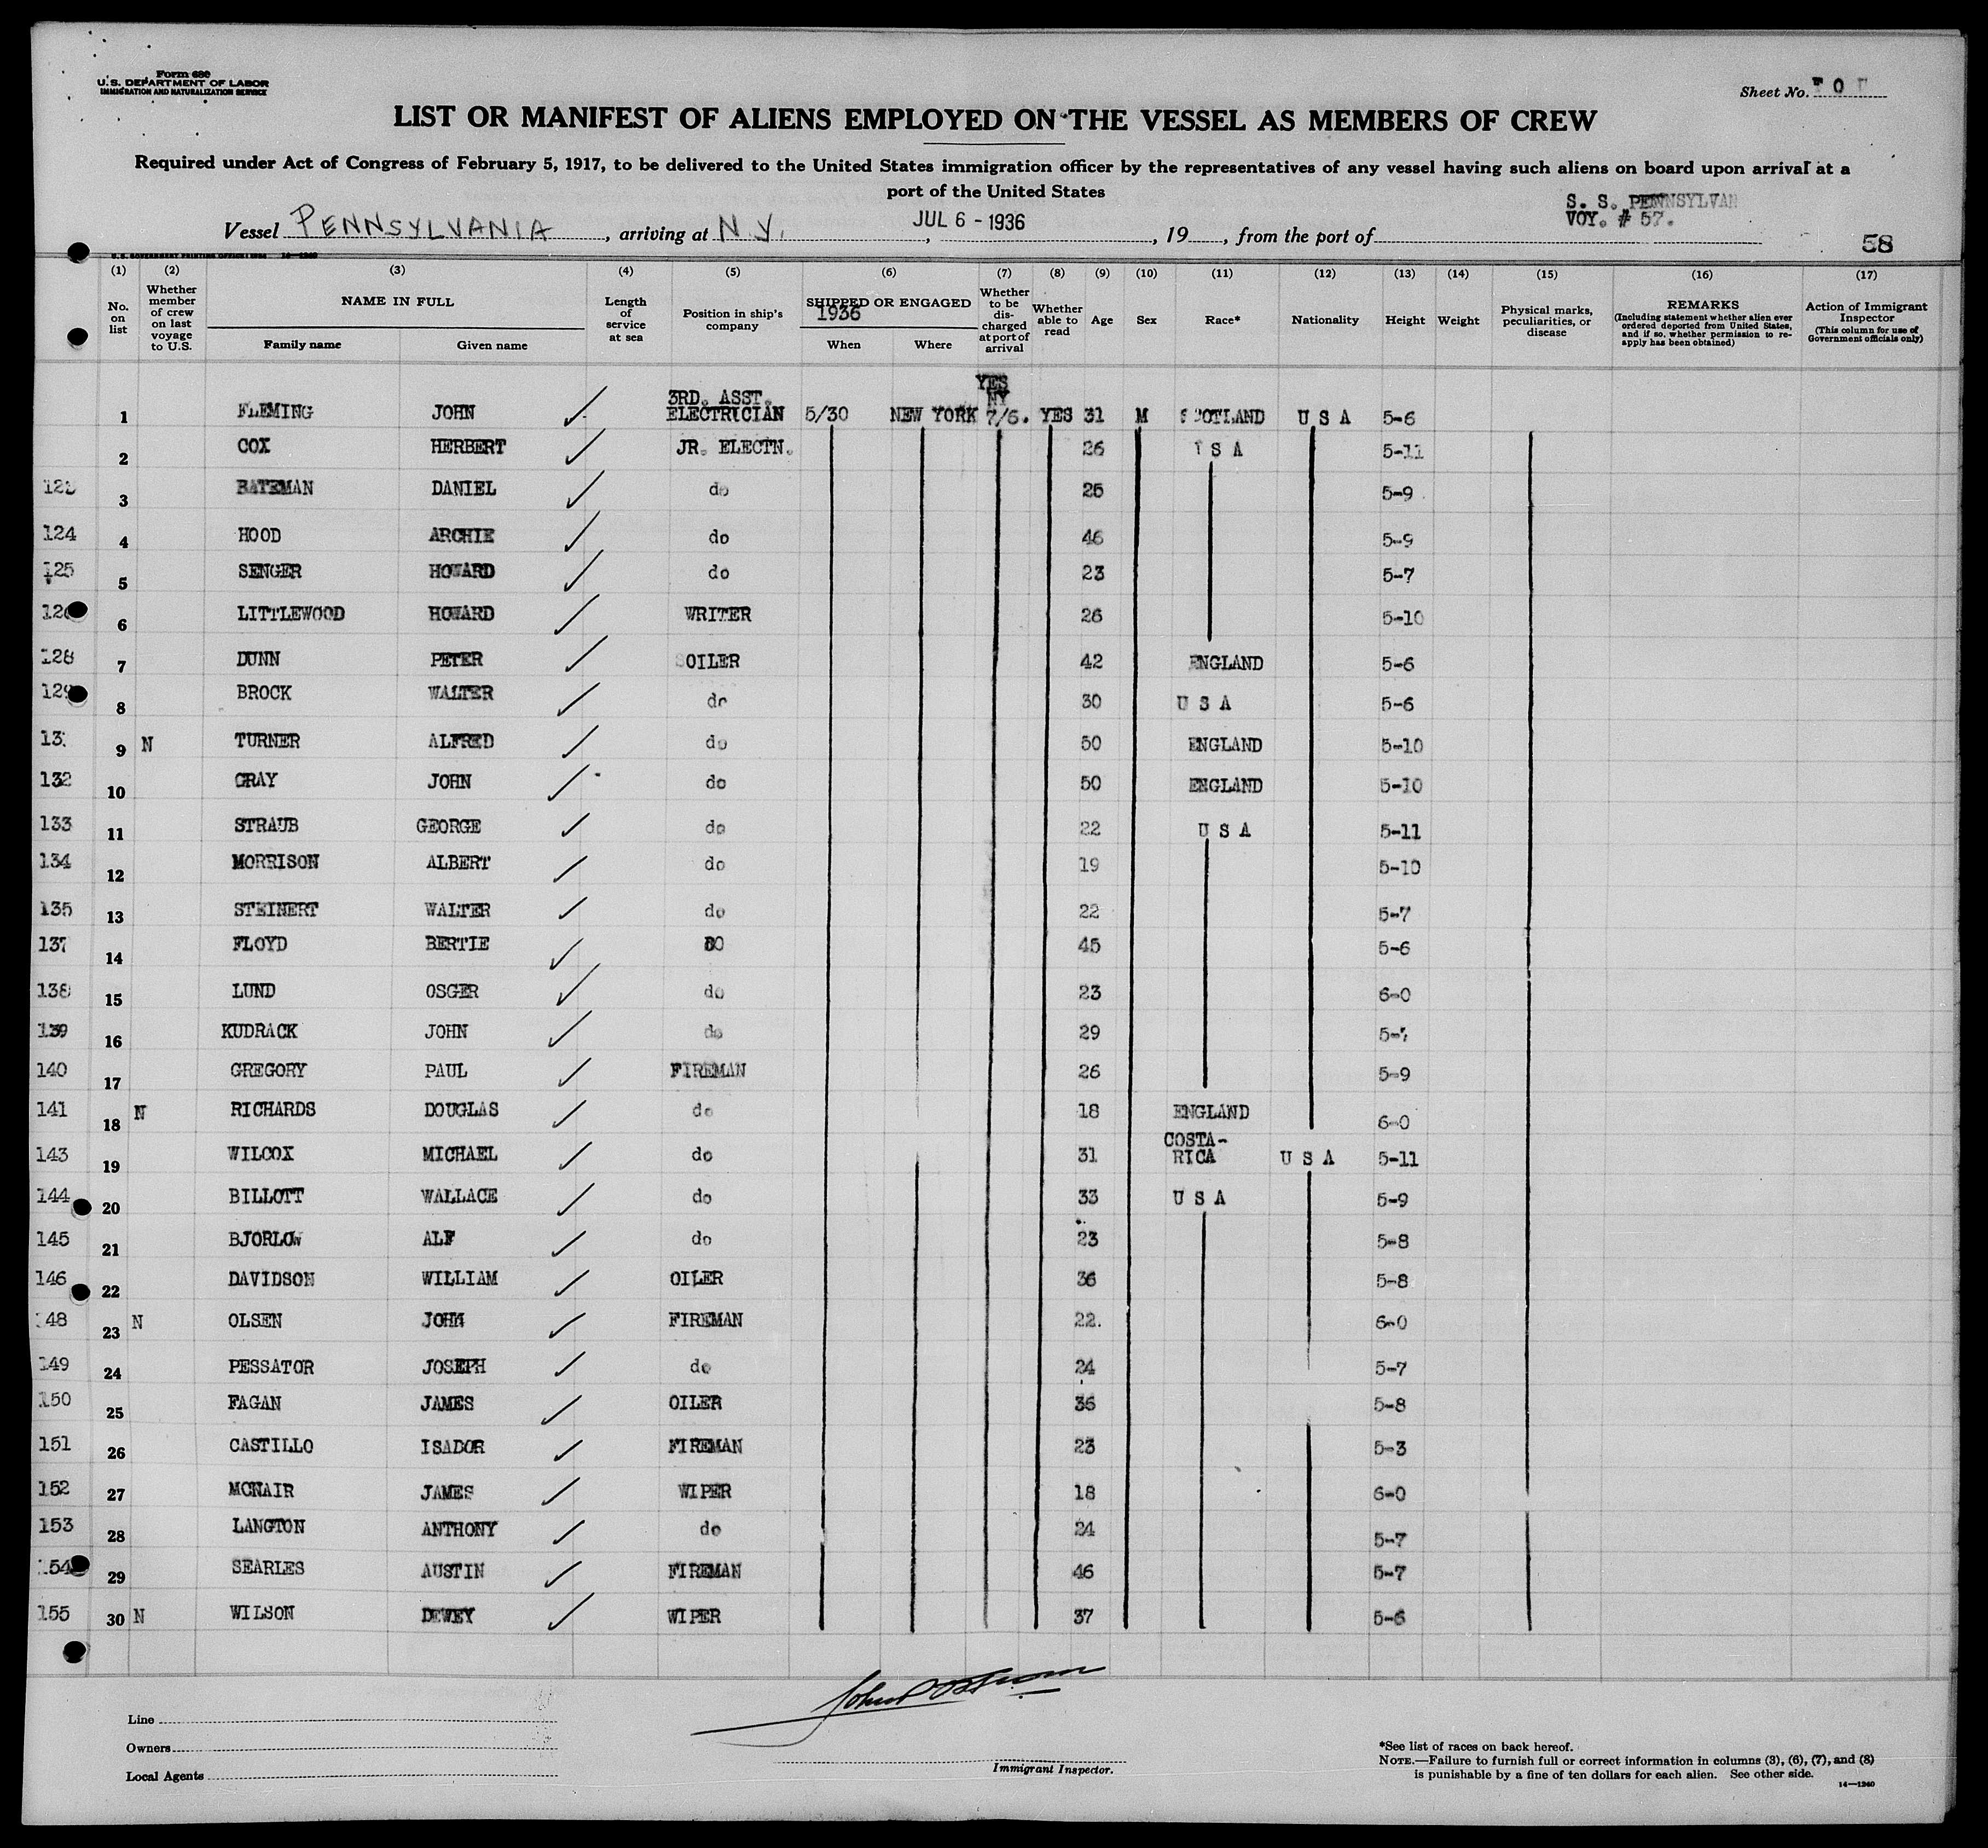 Form 680
U.S. DEPARTMENT OF LABOR
IMMIGRATION AND NATURALIZATION SERVICE
Sheet No.
LIST OR MANIFEST OF ALIENS EMPLOYED ON THE VESSEL AS MEMBERS OF CREW
Required under Act of Congress of February 5, 1917, to be delivered to the United States immigration officer by the representatives of any vessel having such aliens on board upon arrival at a
port of the United States
S. S. PENNSYLVAN
VOY. # 57.
Vessel PENNSYLVANIA, arriving at N.Y., JUL 6 - 1936, 19, from the port of
58
U.S. GOVERNMENT PRINTING OFFICE: 1934 14—1240
(1) (2) (3) (4) (5) (6) (7) (8) (9) (10) (11) (12) (13) (14) (15) (16) (17)
No. on list
Whether member of crew on last voyage to U.S.
NAME IN FULL
Family name Given name
Length of service at sea
Position in ship's company
SHIPPED OR ENGAGED
1936
When Where
Whether to be discharged at port of arrival
Whether able to read
Age
Sex
Race*
Nationality
Height
Weight
Physical marks, peculiarities, or disease
REMARKS
(Including statement whether alien ever ordered deported from United States, and if so, whether permission to reapply has been obtained)
Action of Immigrant Inspector
(This column for use of Government officials only)
1 FLEMING JOHN 3RD. ASST. ELECTRICIAN 5/30 NEW YORK YES NY 7/6. YES 31 M SCOTLAND U S A 5-6
2 COX HERBERT JR. ELECTN. 26 U S A 5-11
3 BATEMAN DANIEL do 25 5-9
124 4 HOOD ARCHIE do 46 5-9
125 5 SENGER HOWARD do 23 5-7
6 LITTLEWOOD HOWARD WRITER 26 5-10
128 7 DUNN PETER OILER 42 ENGLAND 5-6
129 8 BROCK WALTER do 30 U S A 5-6
9 N TURNER ALFRED do 50 ENGLAND 5-10
132 10 GRAY JOHN do 50 ENGLAND 5-10
133 11 STRAUB GEORGE do 22 U S A 5-11
134 12 MORRISON ALBERT do 19 5-10
135 13 STEINERT WALTER do 22 5-7
137 14 FLOYD BERTIE DO 45 5-6
138 15 LUND OSGER do 23 6-0
139 16 KUDRACK JOHN do 29 5-7
140 17 GREGORY PAUL FIREMAN 26 5-9
141 18 N RICHARDS DOUGLAS do 18 ENGLAND 6-0
143 19 WILCOX MICHAEL do 31 COSTA-RICA U S A 5-11
144 20 BILLOTT WALLACE do 33 U S A 5-9
145 21 BJORLOW ALF do 23 5-8
146 22 DAVIDSON WILLIAM OILER 36 5-8
148 23 N OLSEN JOHN FIREMAN 22. 6-0
149 24 PESSATOR JOSEPH do 24 5-7
150 25 FAGAN JAMES OILER 36 5-8
151 26 CASTILLO ISADOR FIREMAN 23 5-3
152 27 MCNAIR JAMES WIPER 18 6-0
153 28 LANGTON ANTHONY do 24 5-7
154 29 SEARLES AUSTIN FIREMAN 46 5-7
155 30 N WILSON DEWEY WIPER 37 5-6
Line
Owners
Local Agents
Immigrant Inspector.
*See list of races on back hereof.
NOTE.—Failure to furnish full or correct information in columns (3), (6), (7), and (8)
is punishable by a fine of ten dollars for each alien. See other side.
14—1240